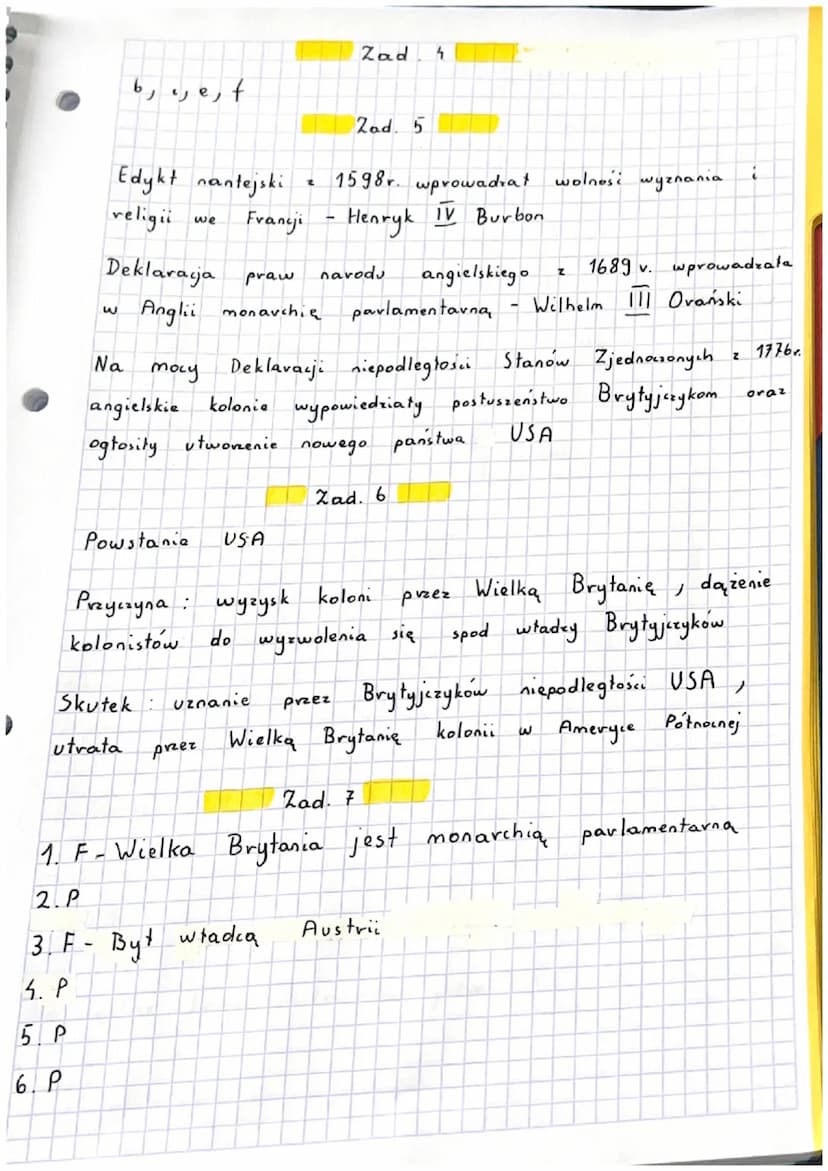 Zad. 4
b, c, e, f
Zad. 5
Edykt nantejski z 1598r. wprowadzał wolność wyznania i
religii we Francji - Henryk IV Burbon
Deklaracja praw narodu angielskiego z 1689 r. wprowadzała
w Anglii monarchię parlamentarną - Wilhelm III Orański
Na mocy Deklaracji niepodległości Stanów Zjednoczonych z 1776r.
angielskie kolonie wypowiedziały posłuszeństwo Brytyjczykom oraz
ogłosiły utworzenie nowego państwa USA
Zad. 6
Powstanie USA
Przyczyna : wyzysk koloni przez Wielką Brytanię , dążenie
kolonistów do wyzwolenia się spod władzy Brytyjczyków
Skutek : uznanie przez Brytyjczyków niepodległości USA ,
utrata przez Wielką Brytanię kolonii w Ameryce Północnej
Zad. 7
1. F - Wielka Brytania jest monarchią parlamentarną
2. P
3. F - Był władcą Austrii
4. P
5. P
6. P